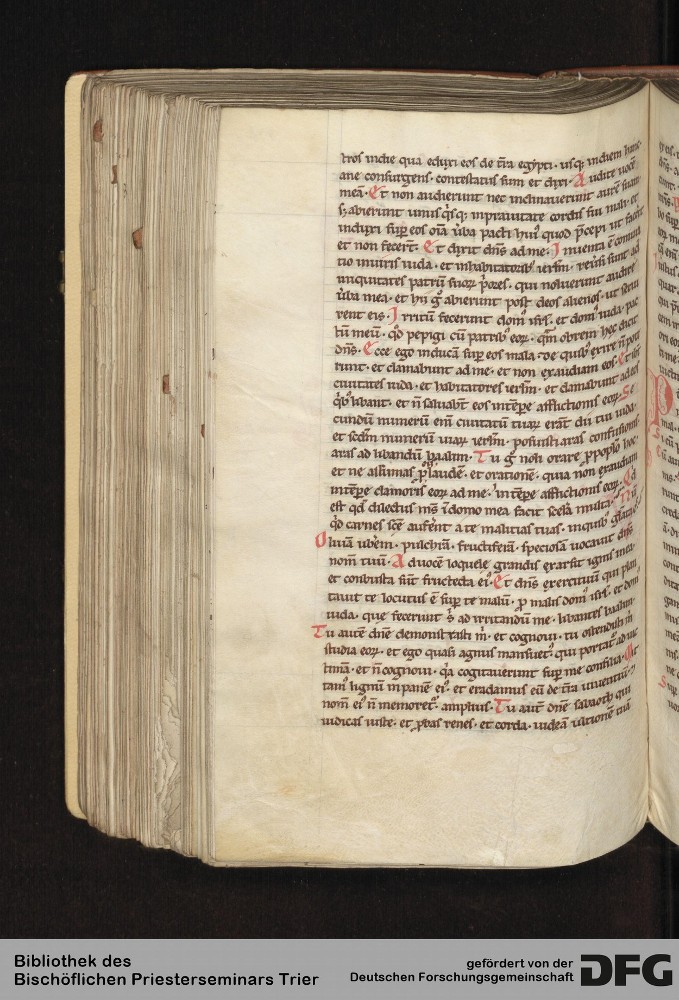 tros indie qua eduxi eos de t̄ra egypti · usq; in diem hanc
ane consurgens · contestatus sum et dixi · Audite uocē
meā · Et non audierunt nec inclinauerunt aurē suam
s; abierunt unusq̄sq; inprauitate cordis sui mali · et
induxi sup̄ eos om̄ia ūba pacti hui9 quod p̄cepi ut facerēt
et non fecer̄t · Et dixit dn̄s ad me · Inuenta ē coniura
tio inuiris iuda · et inhabitatorib9 ierl̄m · reuersi sunt ad
iniquitates patrū suoꝝ p̄ores · qui noluerunt audire
ūba mea · et hii g̊ abierunt post deos alienos · ut serui
rent eis · Irritū fecerunt dom9 isrl̄ · et dom9 iuda · pac
tū meū · qd̄ pepigi cū patrib9 eoꝝ · qm̄ obrem hec dicit
dn̄s · Ecce ego inducā sup̄ eos mala · de quib9 exire n̄ pote
runt · et clamabunt ad me · et non exaudiam eos · Et ibt̄
ciuitates iuda · et habitatores ierl̄m · et clamabunt ad eos
q̄b9 libant · et n̄ saluabt̄ eos intēpe afflictionis eoꝝ · Se
cundū numerū eni̅ ciuitatū tuaꝝ erāt dii tui iuda ·
et scd̄m numerū uiaꝝ ierl̄m · posuisti aras confusionis
aras ad libandū baalim · Tu g̊ noli orare p̄ popl̄o hoc ·
et ne assumas p̄ eis laudē · et orationē · quia non exaudiam
intēpe clamoris eoꝝ ad me · intēpe afflictionis eoꝝ · Qd̄
est qd̄ dilectus ms̄ ī domo mea facit scel̄a multa · Nū
qd̄ carnes sc̄e aufer̄nt a te malitias tuas · inquib9 gl̄iata es
Oliuā uberē · pulchrā · fructiferā · speciosā uocauit dn̄s
nom̄ tuū · Ad uocē loquele grandis exarsit ignis inea ·
et conbusta st̄ fructecta ei9 · Et dn̄s exercituū qui plan
tauit te locutus ē sup̄ te malū · p̄ malis dom9 isrl̄ · et dom9
iuda · que fecerunt s̄ ad irritandū me · libantes baalim ·
Tu autē dn̄e demonstrasti m̄ · et cognoui · tu ostendisti m̄
studia eoꝝ · et ego quasi agnus mansuet9 qui portat̄ ad uic
timā · et n̄ cognoui · q̄a cogitauerunt sup̄ me consilia · Mit
tam9 lignū inpanē ei9 · et eradamus eū de t̄ra uiuentiū · &
nom̄ ei9 n̄ memoret̄ amplius · Tu aut̄ dn̄e sabaoth qui
iudicas iuste · et p̄bas renes · et corda · uideā ultionē tuā
Bibliothek des
Bischöflichen Priesterseminars Trier
gefördert von der
Deutschen Forschungsgemeinschaft
DFG